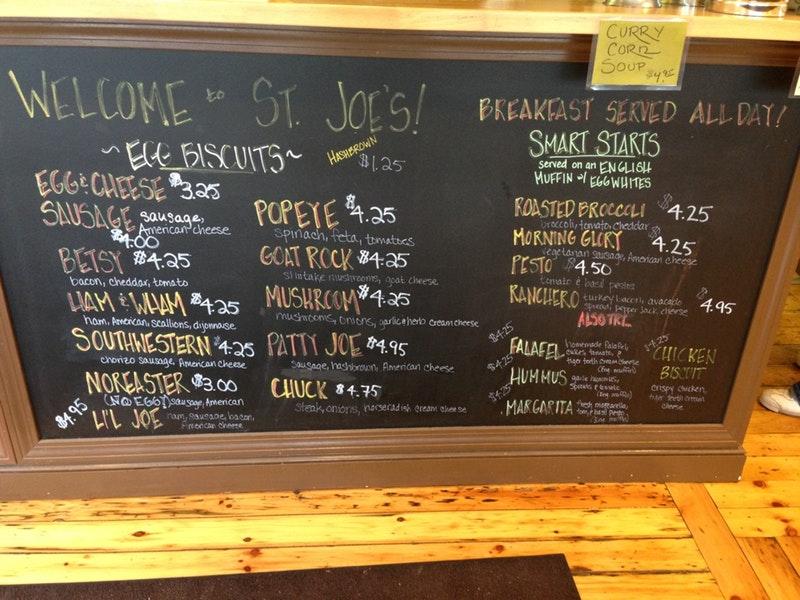 CURRY
CORN
SOUP $4.95
WELCOME to ST. JOE'S!
BREAKFAST SERVED ALL DAY!
~ EGG BISCUITS ~
HASHBROWN
$1.25
EGG & CHEESE $3.25
SAUSAGE sausage,
American cheese
$4.00
BETSY $4.25
bacon, cheddar, tomato
HAM & WHAM $4.25
ham, American, scallions, dijonnaise
SOUTHWESTERN $4.25
chorizo sausage, American cheese
NOREASTER $3.00
(NO EGG) sausage, American
$4.95 LI'L JOE ham, sausage, bacon,
American cheese
POPEYE $4.25
spinach, feta, tomatoes
GOAT ROCK $4.25
shiitake mushrooms, goat cheese
MUSHROOM $4.25
mushrooms, onions, garlic & herb cream cheese
PATTY JOE $4.95
sausage, hashbrown, American cheese
CHUCK $4.75
steak, onions, horseradish cream cheese
SMART STARTS
served on an ENGLISH
MUFFIN w/ EGG WHITES
ROASTED BROCCOLI $4.25
broccoli, tomato, cheddar
MORNING GLORY $4.25
vegetarian sausage, American cheese
PESTO $4.50
tomato & basil pesto
RANCHERO turkey bacon, avocado
spread, pepper jack cheese
$4.95
ALSO TRY...
$4.25
FALAFEL homemade falafel
cakes, tomato, &
tiger teeth cream cheese
(Eng. muffin)
$4.25
HUMMUS garlic hummus,
sprouts & tomato
(Eng. muffin)
MARGARITA fresh mozzarella,
tom, & basil pesto
(Eng. muffin)
CHICKEN
BISCUIT
crispy chicken,
tiger teeth cream
cheese